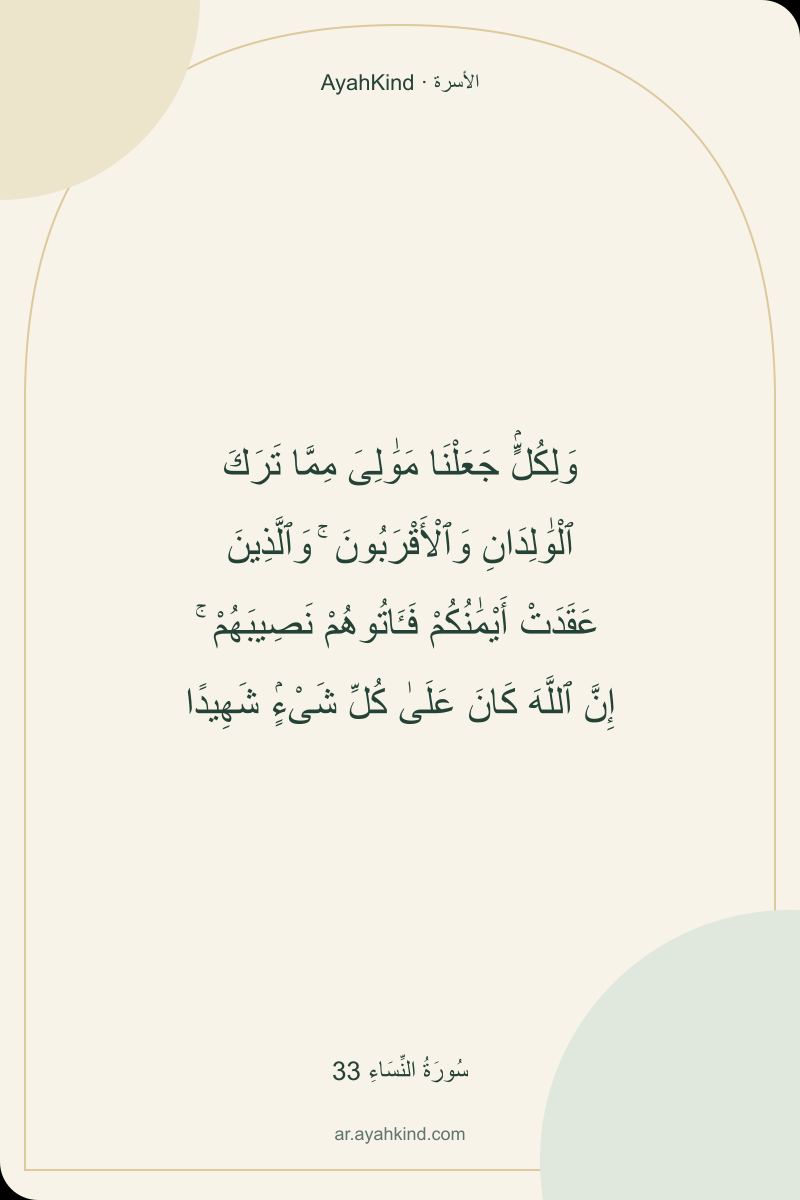 AyahKind · الأسرة
وَلِكُلٍّۢ جَعَلْنَا مَوَٰلِىَ مِمَّا تَرَكَ
ٱلْوَٰلِدَانِ وَٱلْأَقْرَبُونَ ۚ وَٱلَّذِينَ
عَقَدَتْ أَيْمَٰنُكُمْ فَـَٔاتُوهُمْ نَصِيبَهُمْ ۚ
إِنَّ ٱللَّهَ كَانَ عَلَىٰ كُلِّ شَىْءٍۢ شَهِيدًا
سُورَةُ النِّسَاءِ 33
ar.ayahkind.com